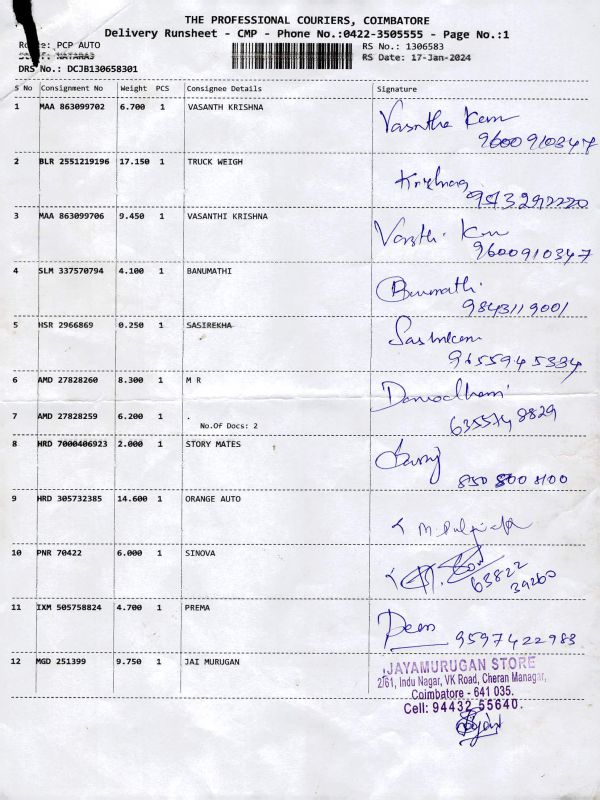 THE PROFESSIONAL COURIERS, COIMBATORE
Delivery Runsheet - CMP - Phone No.:0422-3505555 - Page No.:1
Route: PCP AUTO
RS No.: 1306583
Staff: NATARAJ
RS Date: 17-Jan-2024
DRS No.: DCJB130658301
S No Consignment No Weight PCS Consignee Details Signature
1 MAA 863099702 6.700 1 VASANTH KRISHNA
9600910347
2 BLR 2551219196 17.150 1 TRUCK WEIGH
3 MAA 863099706 9.450 1 VASANTHI KRISHNA
9600910347
4 SLM 337570794 4.100 1 BANUMATHI
Banumathi
9843119001
5 HSR 2966869 0.250 1 SASIREKHA
9655945334
6 AMD 27828260 8.300 1 M R
7 AMD 27828259 6.200 1 .
No.Of Docs: 2
8 HRD 7000406923 2.000 1 STORY MATES
850 800 8100
9 HRD 305732385 14.600 1 ORANGE AUTO
10 PNR 70422 6.000 1 SINOVA
63822
39260
11 IXM 505758824 4.700 1 PREMA
9597422983
12 MGD 251399 9.750 1 JAI MURUGAN
JAYAMURUGAN STORE
2/61, Indu Nagar, VK Road, Cheran Managar,
Coimbatore - 641 035.
Cell: 94432 55640.